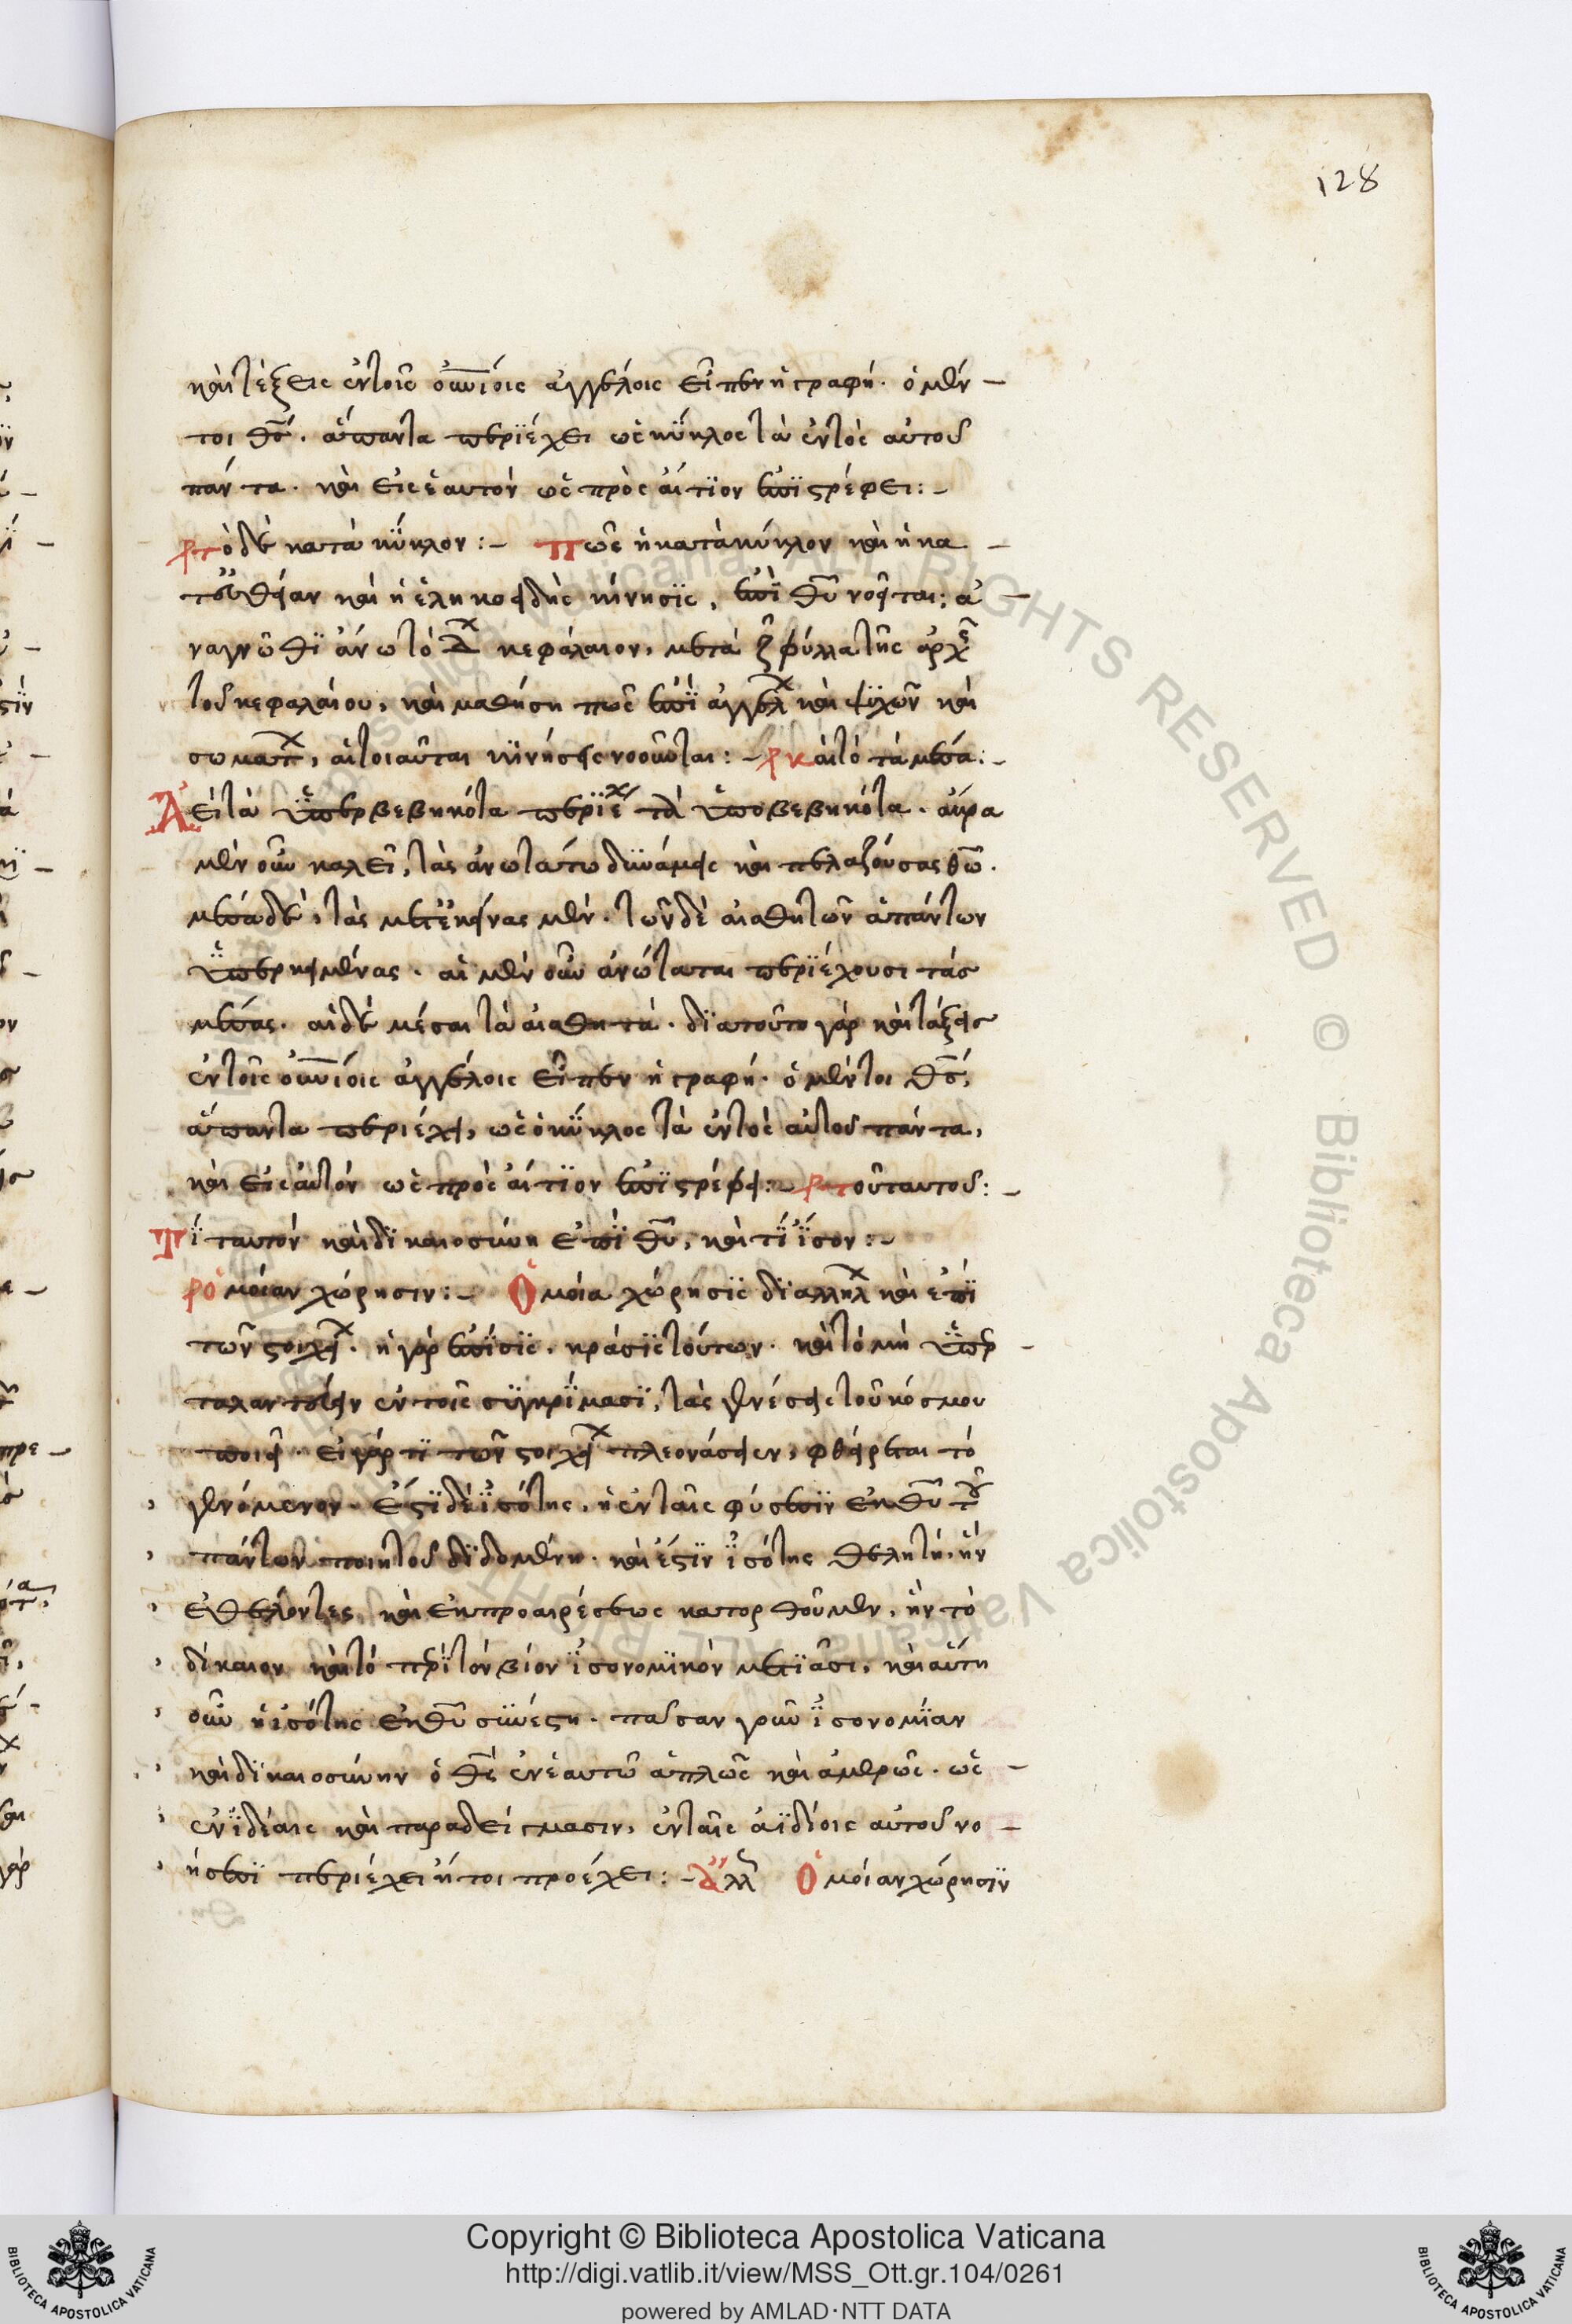 128
καὶ τέξεις ἐν τοῖς οὐνίοις ἀγγέλοις εἶπεν ἡ γραφή. ὁ μέν
τοι θσ. ἅπαντα περϊέχει ὡς κϋκλος τὰ ἐντὸς αὐτοῦ
πάντα. καὶ εἰς ἑαυτὸν ὡς πρὸς αἴτϊον ἐπϊστρέφει:-
τὸ δὲ κατὰ κϋκλον:- Πῶς ἡ κατὰ κύκλον καὶ ἡ κα
τευθεῖαν καὶ ἡ ἑλικοειδὴς κίνησϊς, ἐπϊ θυ νοεῖται; ἀ
νάγνωθϊ ἄνω τὸ κεφάλαιον, μετὰ φύλλα τῆς ἀρχ
τοῦ κεφαλαίου, καὶ μαθήση πῶς ἐπϊ ἀγγελ καὶ ψϋχῶν καὶ
σωματ, αἱ τοιαῦται κϊνήσεις νοοῦνται:- καὶ τὸ τὰ μέσα:-
Ἀεὶ τὰ ὑπερβεβηκότα περϊέχ τὰ ὑποβεβηκότα. ἄκρα
μὲν οὖν καλεῖ, τὰς ἀνωτάτω δυνάμεις καὶ πελαζούσας θω.
μέσα δὲ, τὰς μετ' ἐκείνας μὲν. τῶν δὲ αἰσθητῶν ἁπάντων
ὑπερκειμένας. αἱ μὲν οὖν ἀνώταται περϊέχουσι τὰσ
μέσας. αἱ δὲ μέσαι τὰ αἰσθητά. διατοῦτο γὰρ καὶ τάξεις
ἐν τοῖς οὐνίοις ἀγγέλοις εἶπεν ἡ γραφή. ὁ μέντοι θσ,
ἅπαντα περιέχει, ὡς ὁ κϋκλος τὰ ἐντὸς αὐτοῦ πάντα,
καὶ εἰς αὑτὸν ὡς πρὸς αἴτϊον ἐπϊστρέφει:- τοῦ ταυτοῦ:-
Τϊ ταυτὸν καὶ δϊκαιοσύνη ἐπϊ θυ, καὶ τϊ ἴσον:-
ὁμοίαν χώρησιν:- Ὁμοία χώρησϊς δϊ ἀλλήλ καὶ ἐπϊ
τῶν στοιχεί. ἡ γὰρ ἐπϊσϊς. κράσϊς τούτων. καὶ τὸ μὴ ὑπερ
ταλαντεύειν ἐν τοῖς συγκρϊμασϊ, τὰς γενέσεις τοῦ κόσμου
ποιεῖ. εἰ γάρ τϊ τῶν στοιχεί πλεονάσειεν, φθείρεται τὸ
γενόμενον. ἔστϊ δὲ ἰσότης, ἡ ἐν ταῖς φύσεσϊν ἐκ θυ τοῦ
πάντων ποιητοῦ δϊδομένη. καὶ ἔστϊν ἰσότης θελητὴ, ἣν
ἐθέλοντες καὶ ἐκ προαιρέσεως κατορθοῦμεν, ἣν τὸ
δίκαιον καὶ τὸ πρϊτὸν βίον ἰσονομϊκὸν μετϊᾶσι, καὶ αὕτη
οὖν ἡ ἰσότης ἐκ θυ συνέστη. πᾶσαν γοῦν ἰσονομϊαν
καὶ δϊκαιοσύνην ὁ θσ ἐν ἑαυτῶ ἁπλῶς καὶ ἀμερῶς. ὡς
ἐν ἰδέαις καὶ παραδείγμασιν, ἐν ταῖς ἀϊδίοις αὐτοῦ νο
ήσεσϊ περιέχει ἤτοι προέχει:- ἄλλ Ὁμοίαν χώρησϊν
Copyright © Biblioteca Apostolica Vaticana
http://digi.vatlib.it/view/MSS_Ott.gr.104/0261
powered by AMLAD·NTT DATA